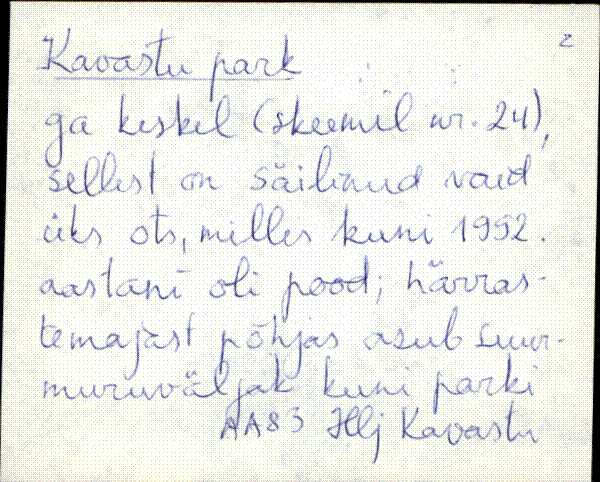 2
Kavastu park
ga keskel (skeemil nr. 24),
sellest on säilinud vaid
üks ots, milles kuni 1992.
aastani oli pood; härras-
temajast põhjas asub suur-
muruväljak kuni parki
AA83 Hlj Kavastu